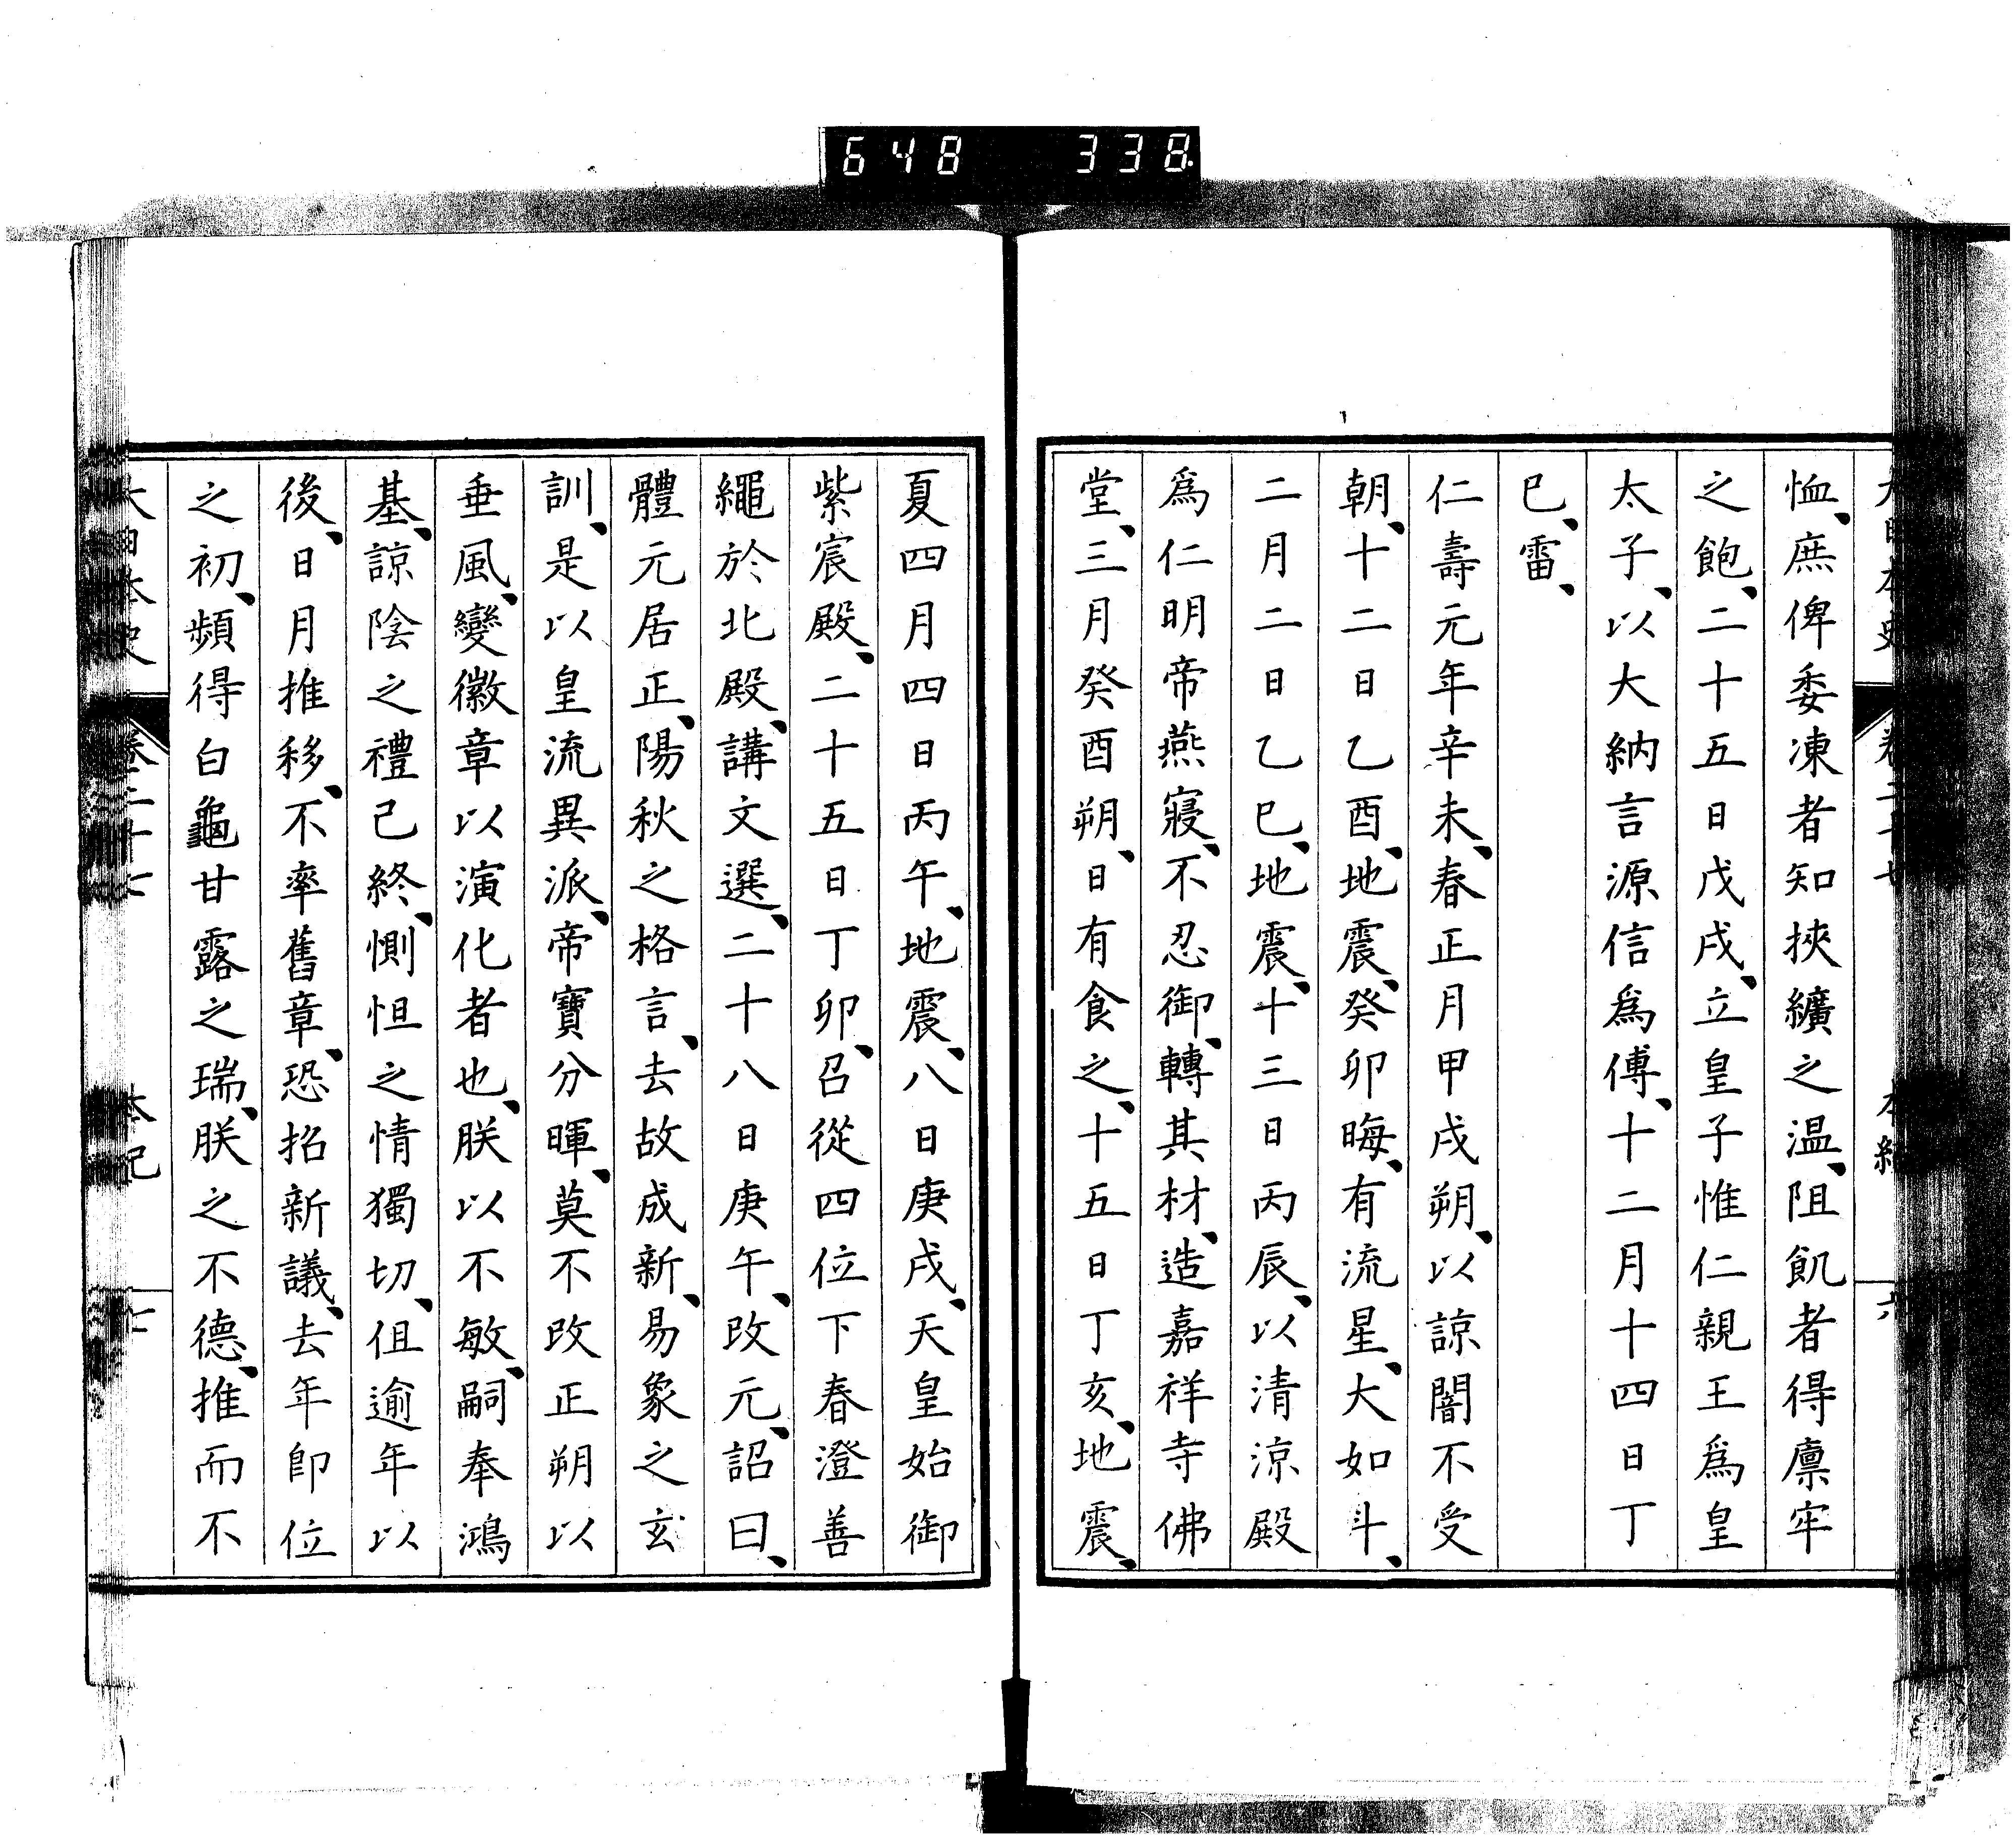 648 338
大日本史 卷二十七 本紀 六
恤、庶俾委凍者知挾纊之温、阻飢者得廩牢
之飽、二十五日戊戌、立皇子惟仁親王爲皇
太子、以大納言源信爲傅、十二月十四日丁
巳、雷、
仁壽元年辛未、春正月甲戌朔、以諒闇不受
朝、十二日乙酉、地震、癸卯晦、有流星、大如斗、
二月二日乙巳、地震、十三日丙辰、以清涼殿
爲仁明帝燕寢、不忍御、轉其材、造嘉祥寺佛
堂、三月癸酉朔、日有食之、十五日丁亥、地震、
夏四月四日丙午、地震、八日庚戌、天皇始御
紫宸殿、二十五日丁卯、召從四位下春澄善
繩於北殿、講文選、二十八日庚午、改元、詔曰、
體元居正、陽秋之格言、去故成新、易象之玄
訓、是以皇流異派、帝寶分暉、莫不改正朔以
垂風、變徽章以演化者也、朕以不敏、嗣奉鴻
基、諒陰之禮已終、惻怛之情獨切、徂逾年以
後、日月推移、不率舊章、恐招新議、去年卽位
之初、頻得白龜甘露之瑞、朕之不德、推而不
大日本史 卷二十七 本紀 七